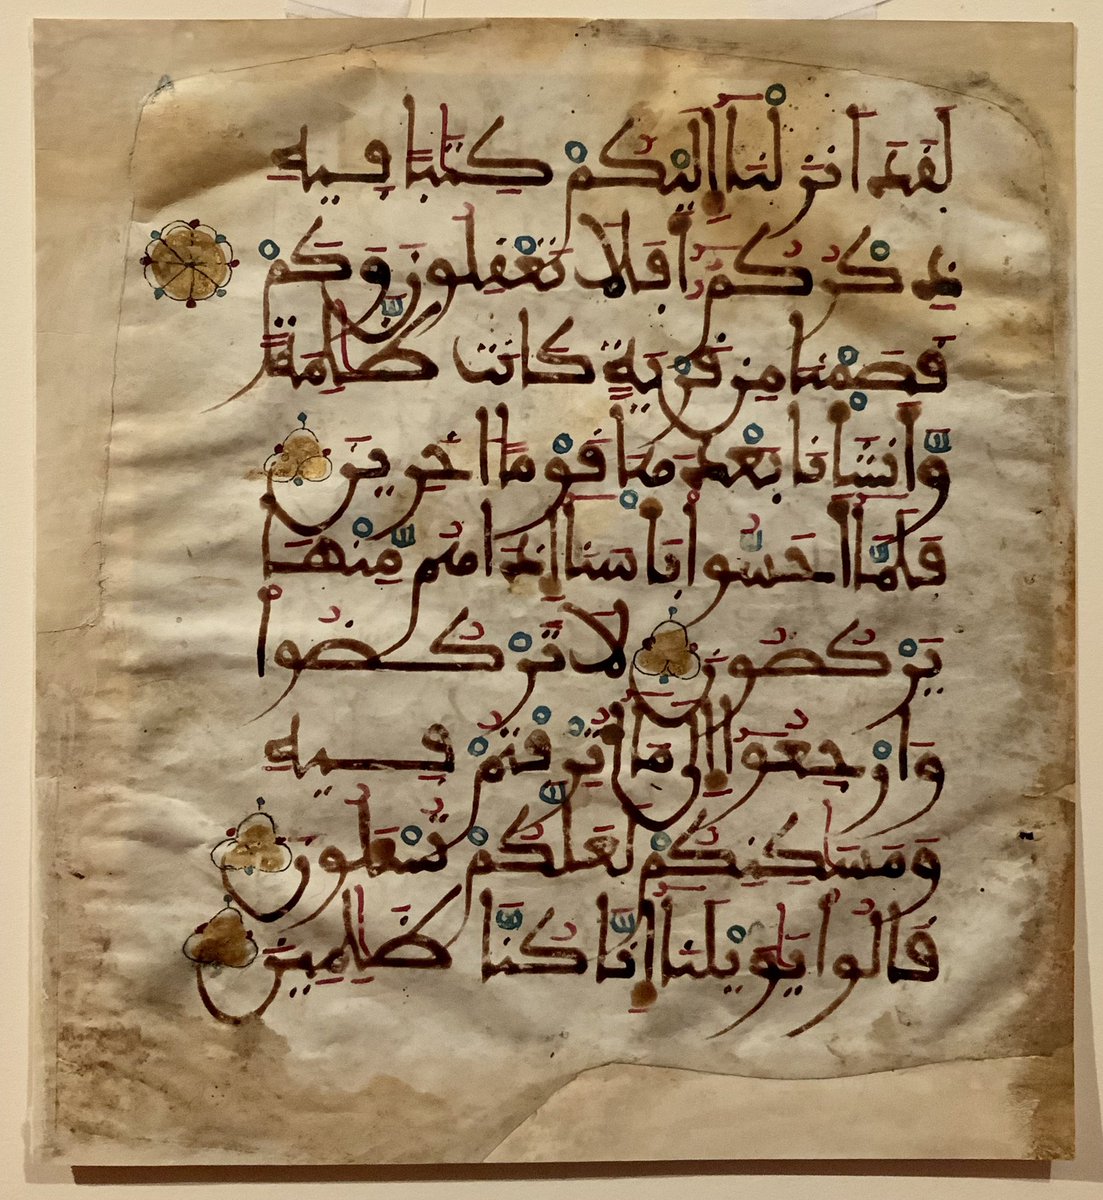 لَقَدَ اَنزَلْنَآ إِلَيْكُمْ كِتَٰبًا فِيهِ
ذِكْرُكُمُۥٓ أَفَلَا تَعْقِلُونَ وَكَمْ
قَصَمْنَا مِن قَرْيَةٍ كَانَتْ ظَٰلِمَةً
وَأَنشَأْنَا بَعْدَهَا قَوْمًا اٰخَرِينَ
فَلَمَّآ أَحَسُّوا۟ بَأْسَنَآ إِذَا هُم مِّنْهَا
يَرْكُضُونَ لَا تَرْكُضُوا۟
وَارْجِعُوٓا۟ إِلَىٰ مَآ أُتْرِفْتُمْ فِيهِ
وَمَسَٰكِنِكُمْ لَعَلَّكُمْ تُسْـَٔلُونَ
قَالُوا۟ يَٰوَيْلَنَآ إِنَّا كُنَّا ظَٰلِمِينَ